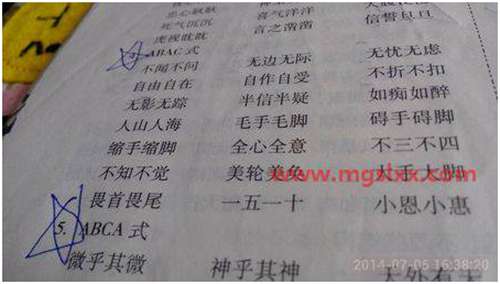 死气沉沉 喜气洋洋
虎视眈眈 言之凿凿 信誓旦旦
ABAC 式
不闻不问 无边无际 无忧无虑
自由自在 自作自受 不折不扣
无影无踪 半信半疑 如痴如醉
人山人海 毛手毛脚 碍手碍脚
缩手缩脚 全心全意 不三不四
不知不觉 美轮美奂 大手大脚
www.mgslxx.com
畏首畏尾 一五一十 小恩小惠
5. ABCA 式
微乎其微 神乎其神 天外有天
2014-07-05 16:38:20